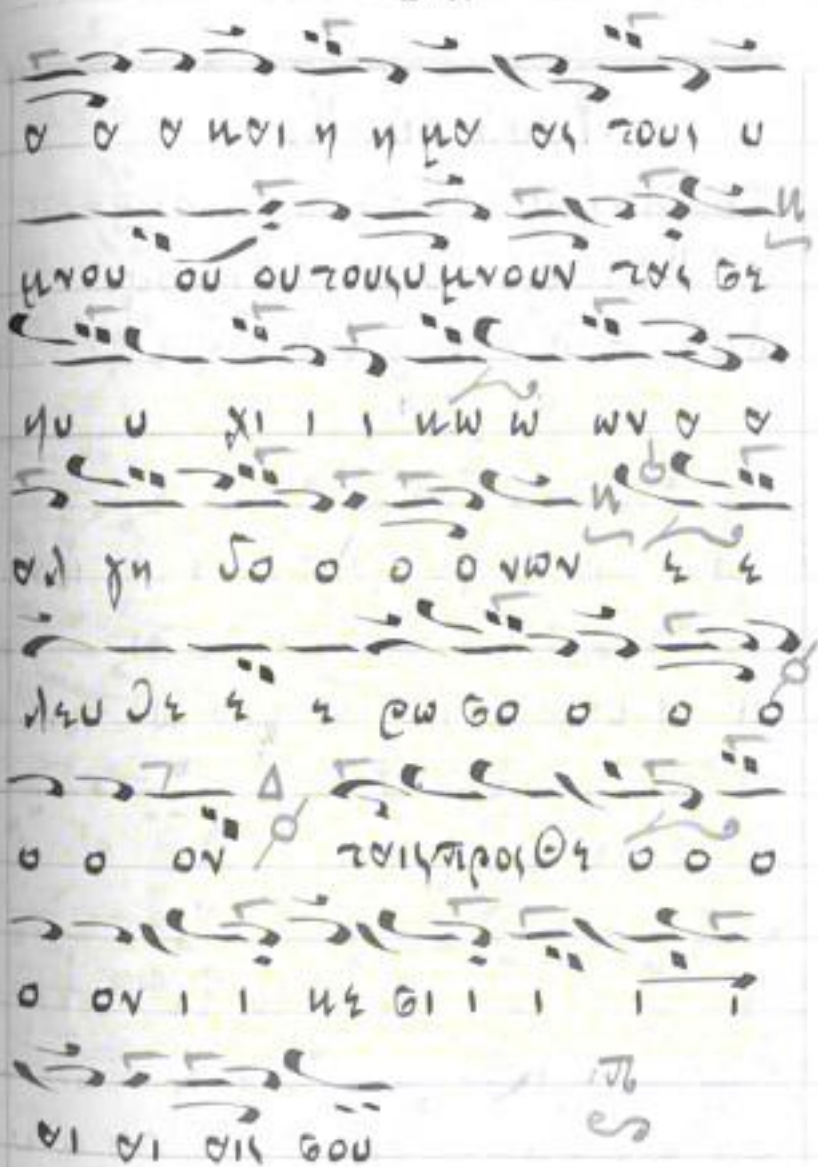 α α α και η η μα ας τους υ
μνου ου ου τους υ μνουν τας σε
πυ υ χι ι ι κω ω ων α α
αλ γη δο ο ο ο νων ε ε
λευ θε ε ε ρω σο ο ο ο
ο ο ον ταις προς Θε ο ο ο
ο ον ι ι κε σι ι ι ι ι
αι αι αις σου